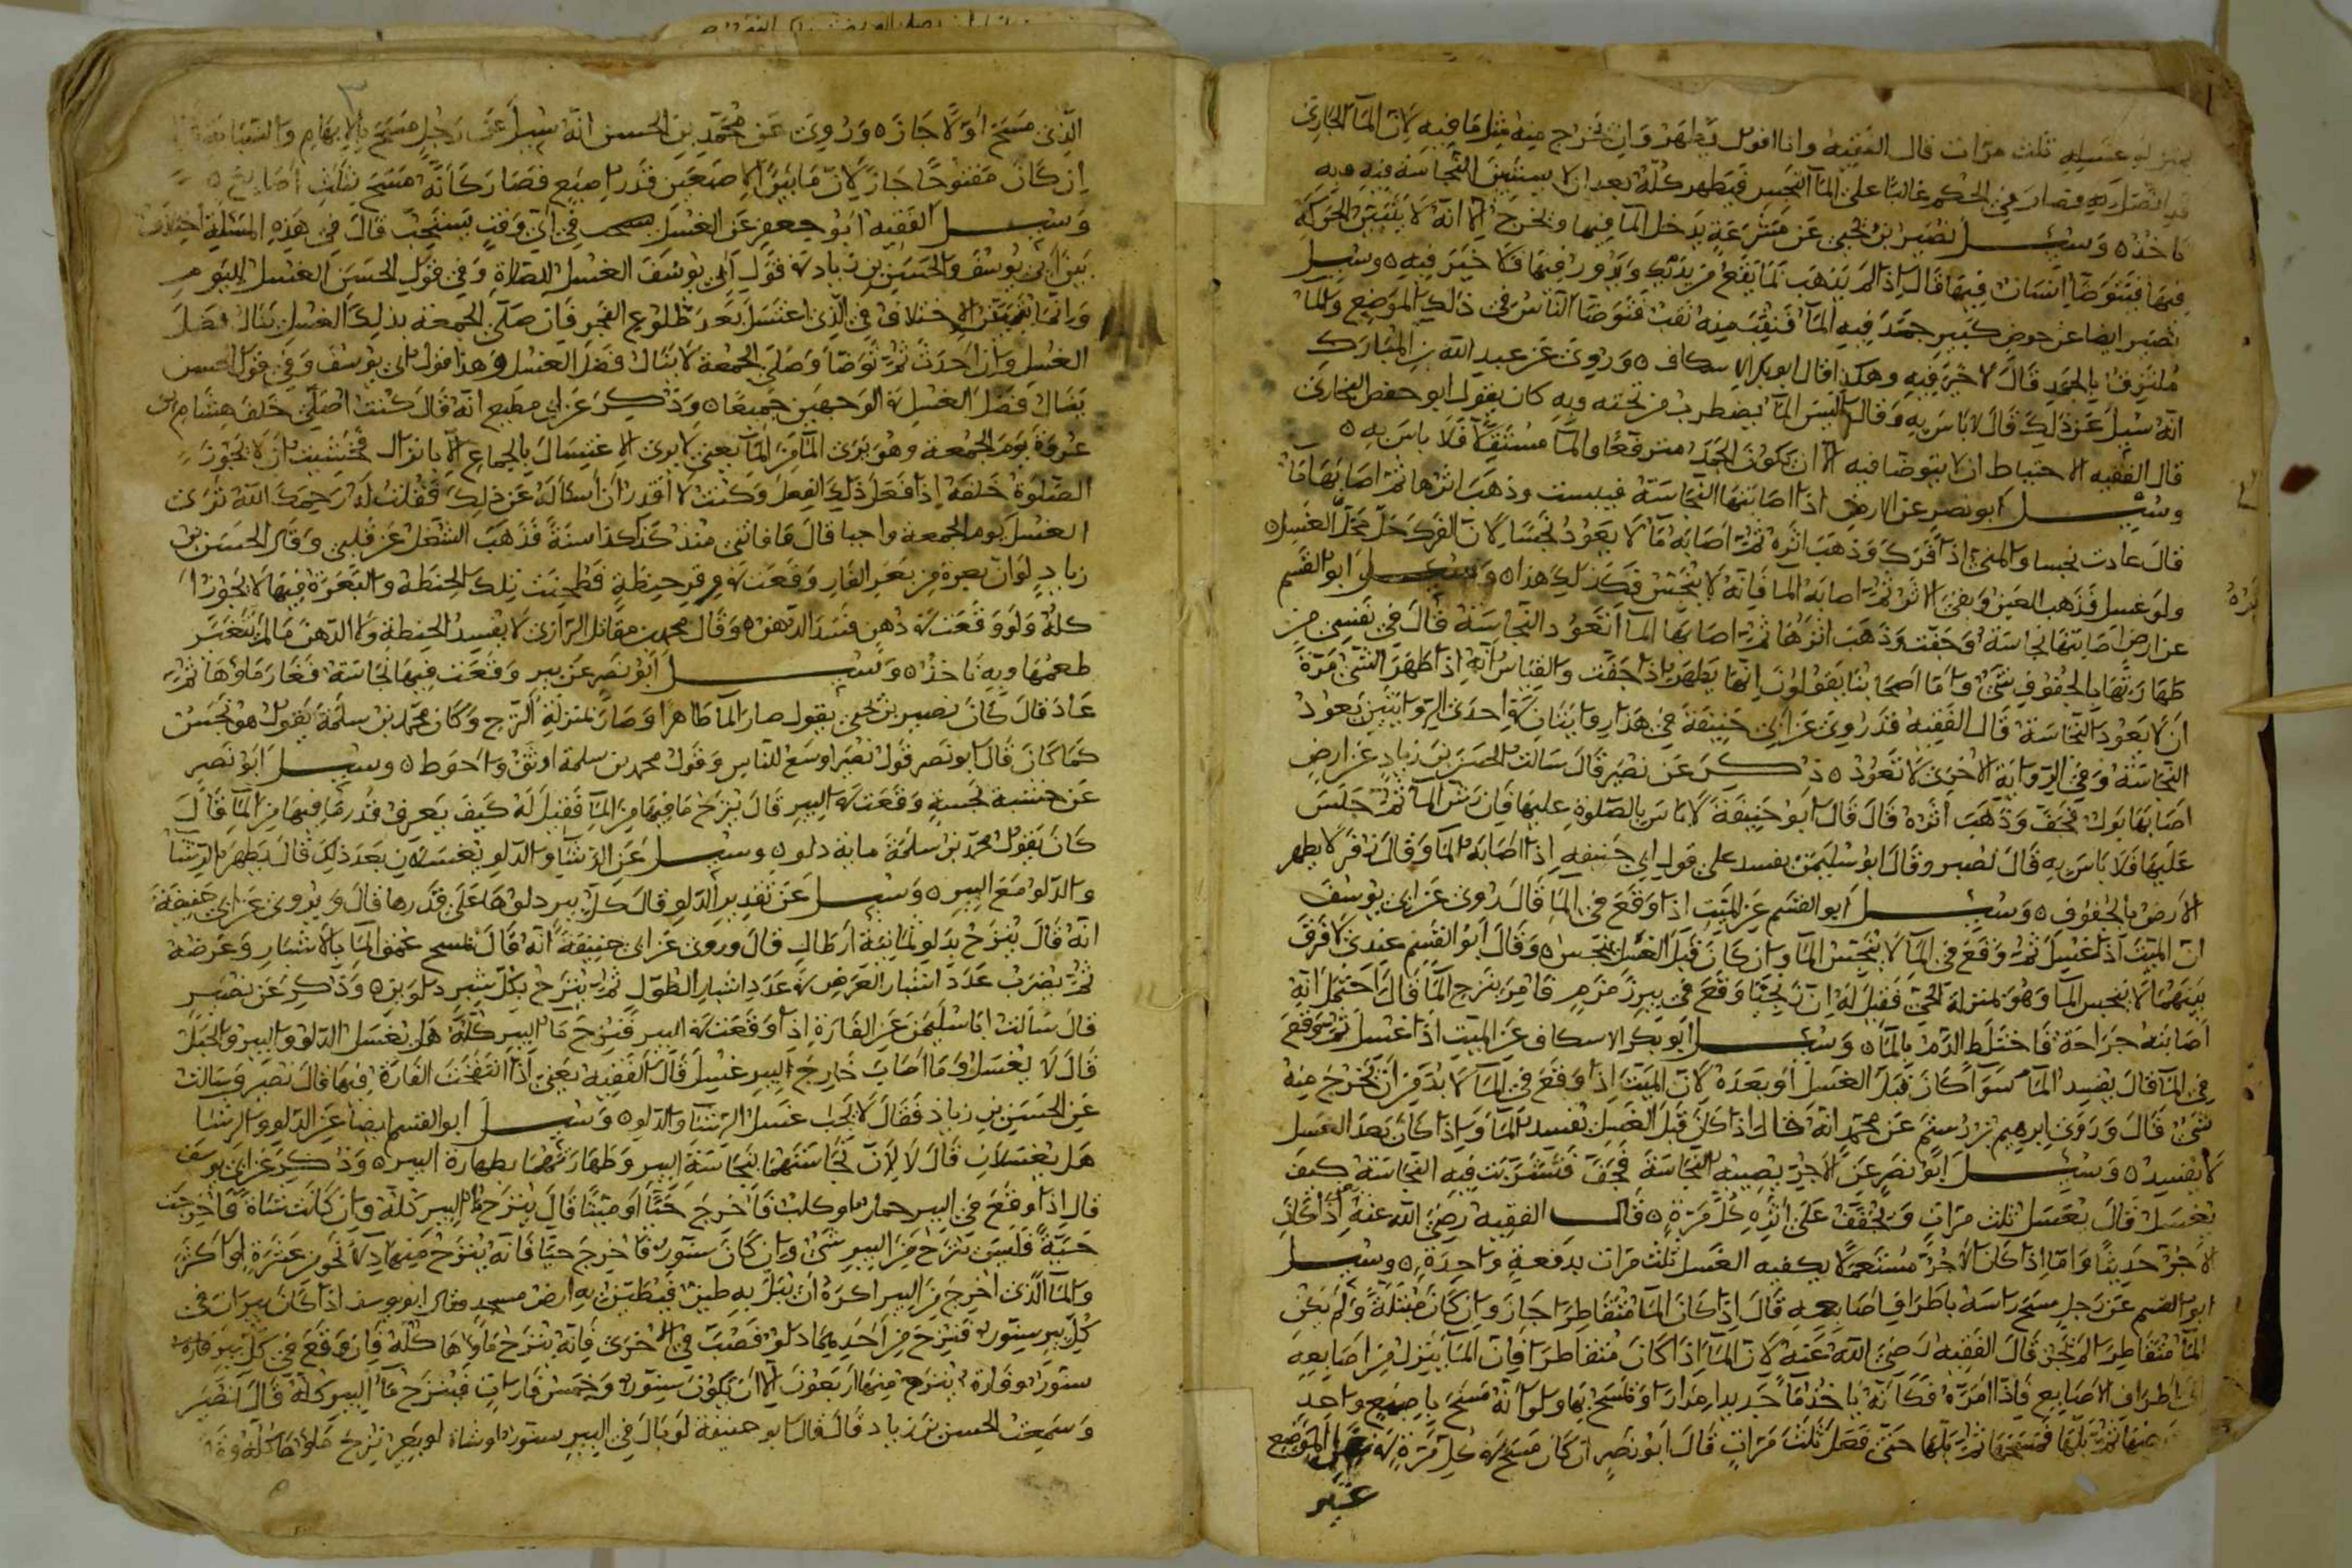 بمنزلة غسله ثلث مرات قال الفقيه وانا اقول يطهر وان لم يخرج منه مثل ما فيه لان المآ الجارى
قد اتصل به فصار في الحكم غالبا على المآ النجس فيطهر كله بعد ان لا يستبين النجاسة فيه وبه
ناخذ ٥ وسئل نصير بن يحيى عن مشرعة يدخل المآ فيها ويخرج الا انه لا يتبين الحركة
فيها فيتوضأ انسان فيها قال اذا لم يذهب لما يقع من يديه ويدور فيها فلا خير فيه ٥ وسئل
نصير ايضا عن حوض كبير جمد فيه المآ فنقب منه نقب فتوضا الناس في ذلك الموضع والمآ
ملتزق بالجمد قال لا خير فيه وهكذا قال ابو بكر الاسكاف ٥ وروى عن عبد الله بن المبارك
انه سئل عن ذلك قال لا باس به وقال اليس المآ يضطرب من تحته وبه كان يقول ابو حفص البخارى
قال الفقيه الاحتياط ان لا يتوضا فيه الا ان يكون الجمد مترفعا والمآ مستقلا فلا باس به ٥
وسئل ابو نصر عن الارض اذا اصابتها النجاسة فيبست وذهب اثرها ثم اصابها مآ
قال عادت نجسا والمنى اذا فرك وذهب اثره ثم اصابه مآ لا يعود نجسا لان الفرك حل محل الغسل ٥
ولو غسل فذهب العين وبقى الاثر ثم اصابه المآ فانه لا ينجس فكذلك هذا ٥ وسئل ابو القسم
عن ارض اصابتها نجاسة وجفت وذهب اثرها ثم اصابها المآ اتعود النجاسة قال في نفسى من
طهارتها بالجفوف شئ واما اصحابنا يقولون انها يطهر اذا جفت والقياس انه اذا طهر الشئ مرة
ان لا يعود النجاسة قال الفقيه قد روى عن ابى حنيفة في هذا روايتان في احدى الروايتين يعود
النجاسة وفي الرواية الاخرى لا تعود ٥ ذكر عن نصير قال سالت الحسن بن زياد عن ارض
اصابها بول فجف وذهب اثره قال قال ابو حنيفة لا باس بالصلوة عليها فان رش المآ ثم جلس
عليها فلا باس به قال نصير وقال ابو سليمن يفسد على قول ابى حنيفه اذا اصابه المآ وقال زفر لا يطهر
الارض بالجفوف ٥ وسئل ابو القسم عن الميت اذا وقع في المآ قال روى عن ابى يوسف
ان الميت اذا غسل ثم وقع في المآ لا ينجس المآ وان كان قبل الغسل ينجس ٥ وقال ابو القسم عندى لا فرق
بينهما لا ينجس المآ وهو بمنزلة الحى فقيل له ان زنجيا وقع في بير زمزم فامر بنزح المآ قال احتمل انه
اصابته جراحة فاختلط الدم بالمآ ٥ وسئل ابو بكر الاسكاف عن الميت اذا غسل ثم وقع
في المآ قال يفسد المآ سوآ كان قبل الغسل او بعده لان الميت اذا وقع في المآ لا بد من ان يخرج منه
شئ قال وروى ابرهيم بن رستم عن محمد انه قال اذا كان قبل الغسل يفسد المآ واذا كان بعد الغسل
لا يفسد ٥ وسئل ابو نصر عن الاجر يصيبه النجاسة فجف فتشربت فيه النجاسة كيف
يغسل قال يغسل ثلث مرات ويجفف على اثره كل مرة ٥ قال الفقيه رضى الله عنه اذا كان
الاجر حديثا واما اذا كان الاجر مستعملا يكفيه الغسل ثلث مرات بدفعة واحدة ٥ وسئل
ابو القسم عن رجل مسح راسه باطراف اصابعه قال اذا كان المآ متقاطرا جاز وان كان مبتلة ولم يكن
المآ متقاطرا لم يجز قال الفقيه رضى الله عنه لان المآ اذا كان متقاطرا فان المآ ينزل من اصابعه
الى اطراف الاصابع فاذا امده فكانه ياخذ مآ جديدا وتمسح بها ولو انه مسح باصبع واحد
ثم بلها فمسحها ثم بلها حتى فعل ثلث مرات قال ابو نصر ان كان مسح في كل مرة في غير الموضع
غير
الذى مسح اولا جاز ٥ وروى عن محمد بن الحسن انه سئل عن رجل مسح بالابهام والسبابة
ان كان مفتوحا جاز لان ما بين الاصبعين قدر اصبع فصار كانه مسح بثلث اصابع ٥
وسئل الفقيه ابو جعفر عن الغسل في اى وقت يستحب قال في هذه المسئلة اختلاف
بين ابى يوسف والحسن بن زياد في قول ابى يوسف الغسل للصلاة وفي قول الحسن الغسل لليوم
وانما يتبين الاختلاف في الذى اغتسل بعد طلوع الفجر فان صلى الجمعة بذلك الغسل ينال فضل
الغسل وان احدث ثم توضا وصلى الجمعة لا ينال فضل الغسل وهذا قول ابى يوسف وفي قول الحسن
ينال فضل الغسل في الوجهين جميعا ٥ وذكر عن ابى مطيع انه قال كنت اصلى خلف هشام بن
عروة يوم الجمعة وهو يرى المآ من المآ يعنى لا يرى الاغتسال بالجماع الا بانزال فخشيت ان لا يجوز
الصلوة خلفه اذا فعل ذلك الفعل وكنت لا اقدر ان اساله عن ذلك فقلت له رحمك الله ترى
الغسل يوم الجمعة واجبا قال ما فاتنى منذ كذا كذا سنة فذهب الشغل عن قلبى وقال الحسن بن
زياد لو ان بعرة من بعر الفار وقعت في وقر حنطة فطحنت تلك الحنطه والبعرة فيها لا يجوز ا
كله ولو وقعت في دهن فسد الدهن ٥ وقال محمد بن مقاتل الرازى لا يفسد الحنطة ولا الدهن ما لم يتغير
طعمها وبه ناخذ ٥ وسئل ابو نصر عن بير وقعت فيها نجاسة فغار ماوها ثم
عاد قال كان نصير بن يحيى يقول صار المآ طاهرا وصار بمنزلة النزح وكان محمد بن سلمة يقول هو نجس
كما كان قال ابو نصر قول نصير اوسع للناس وقول محمد بن سلمة اوثق واحوط ٥ وسئل ابو نصر
عن خشبة نجسة وقعت في البير قال ينزح ما فيها من المآ فقيل له كيف يعرف قدر ما فيها من المآ قال
كان يقول محمد بن سلمة ماية دلو ٥ وسئل عن الرشآ والدلو يغسلان بعد ذلك قال يطهر الرشآ
والدلو مع البير ٥ وسئل عن تقدير الدلو قال كل بير دلوها على قدرها قال ويروى عن ابى حنيفة
انه قال ينزح بدلو ثمانية ارطال قال وروى عن ابى حنيفة انه قال تمسح عمق المآ بالاشبار وعرضه
ثم يضرب عدد اشبار العرض في عدد اشبار الطول ثم ينزح بكل شبر دلوين ٥ وذكر عن نصير
قال سالت ابا سليمن عن الفارة اذا وقعت في البير فنزح مآ البير كله هل يغسل الدلو والبير والحبل
قال لا يغسل وما اصاب خارج البير غسل قال الفقيه يعنى اذا انتفخت الفارة فيها قال نصير وسالت
عن الحسن بن زياد فقال لا يجب غسل الرشآ والدلو ٥ وسئل ابو القسم ايضا عن الدلو والرشآ
هل يغسلان قال لا لان نجاستهما بنجاسة البير وطهارتهما بطهارة البير ٥ وذكر عن ابى يوسف
قال اذا وقع في البير حمار او كلب فاخرج حيا او ميتا قال ينزح مآ البير كله وان كانت شاة فاخرجت
حية فليس ينزح من البير شئ وان كان سنور فاخرج حيا فانه ينزح منها دلآ نحو من عشرة او اكثر
والمآ الذى اخرج من البير اكره ان يبل به طين فيطين به ارض مسجد وقال ابو يوسف اذا كان بيران في
كل بير سنور فنزح من احديهما دلو فصب في الاخرى فانه ينزح ماوها كله فان وقع في كل بير فارة
سنور وفارة ينزح منها اربعون الا ان يكون سنور وخمس فارات فينزح مآ البير كله قال نصير
وسمعت الحسن بن زياد قال قال ابو حنيفة لو بال في البير سنور او شاة او بعير نزح ماوها كله